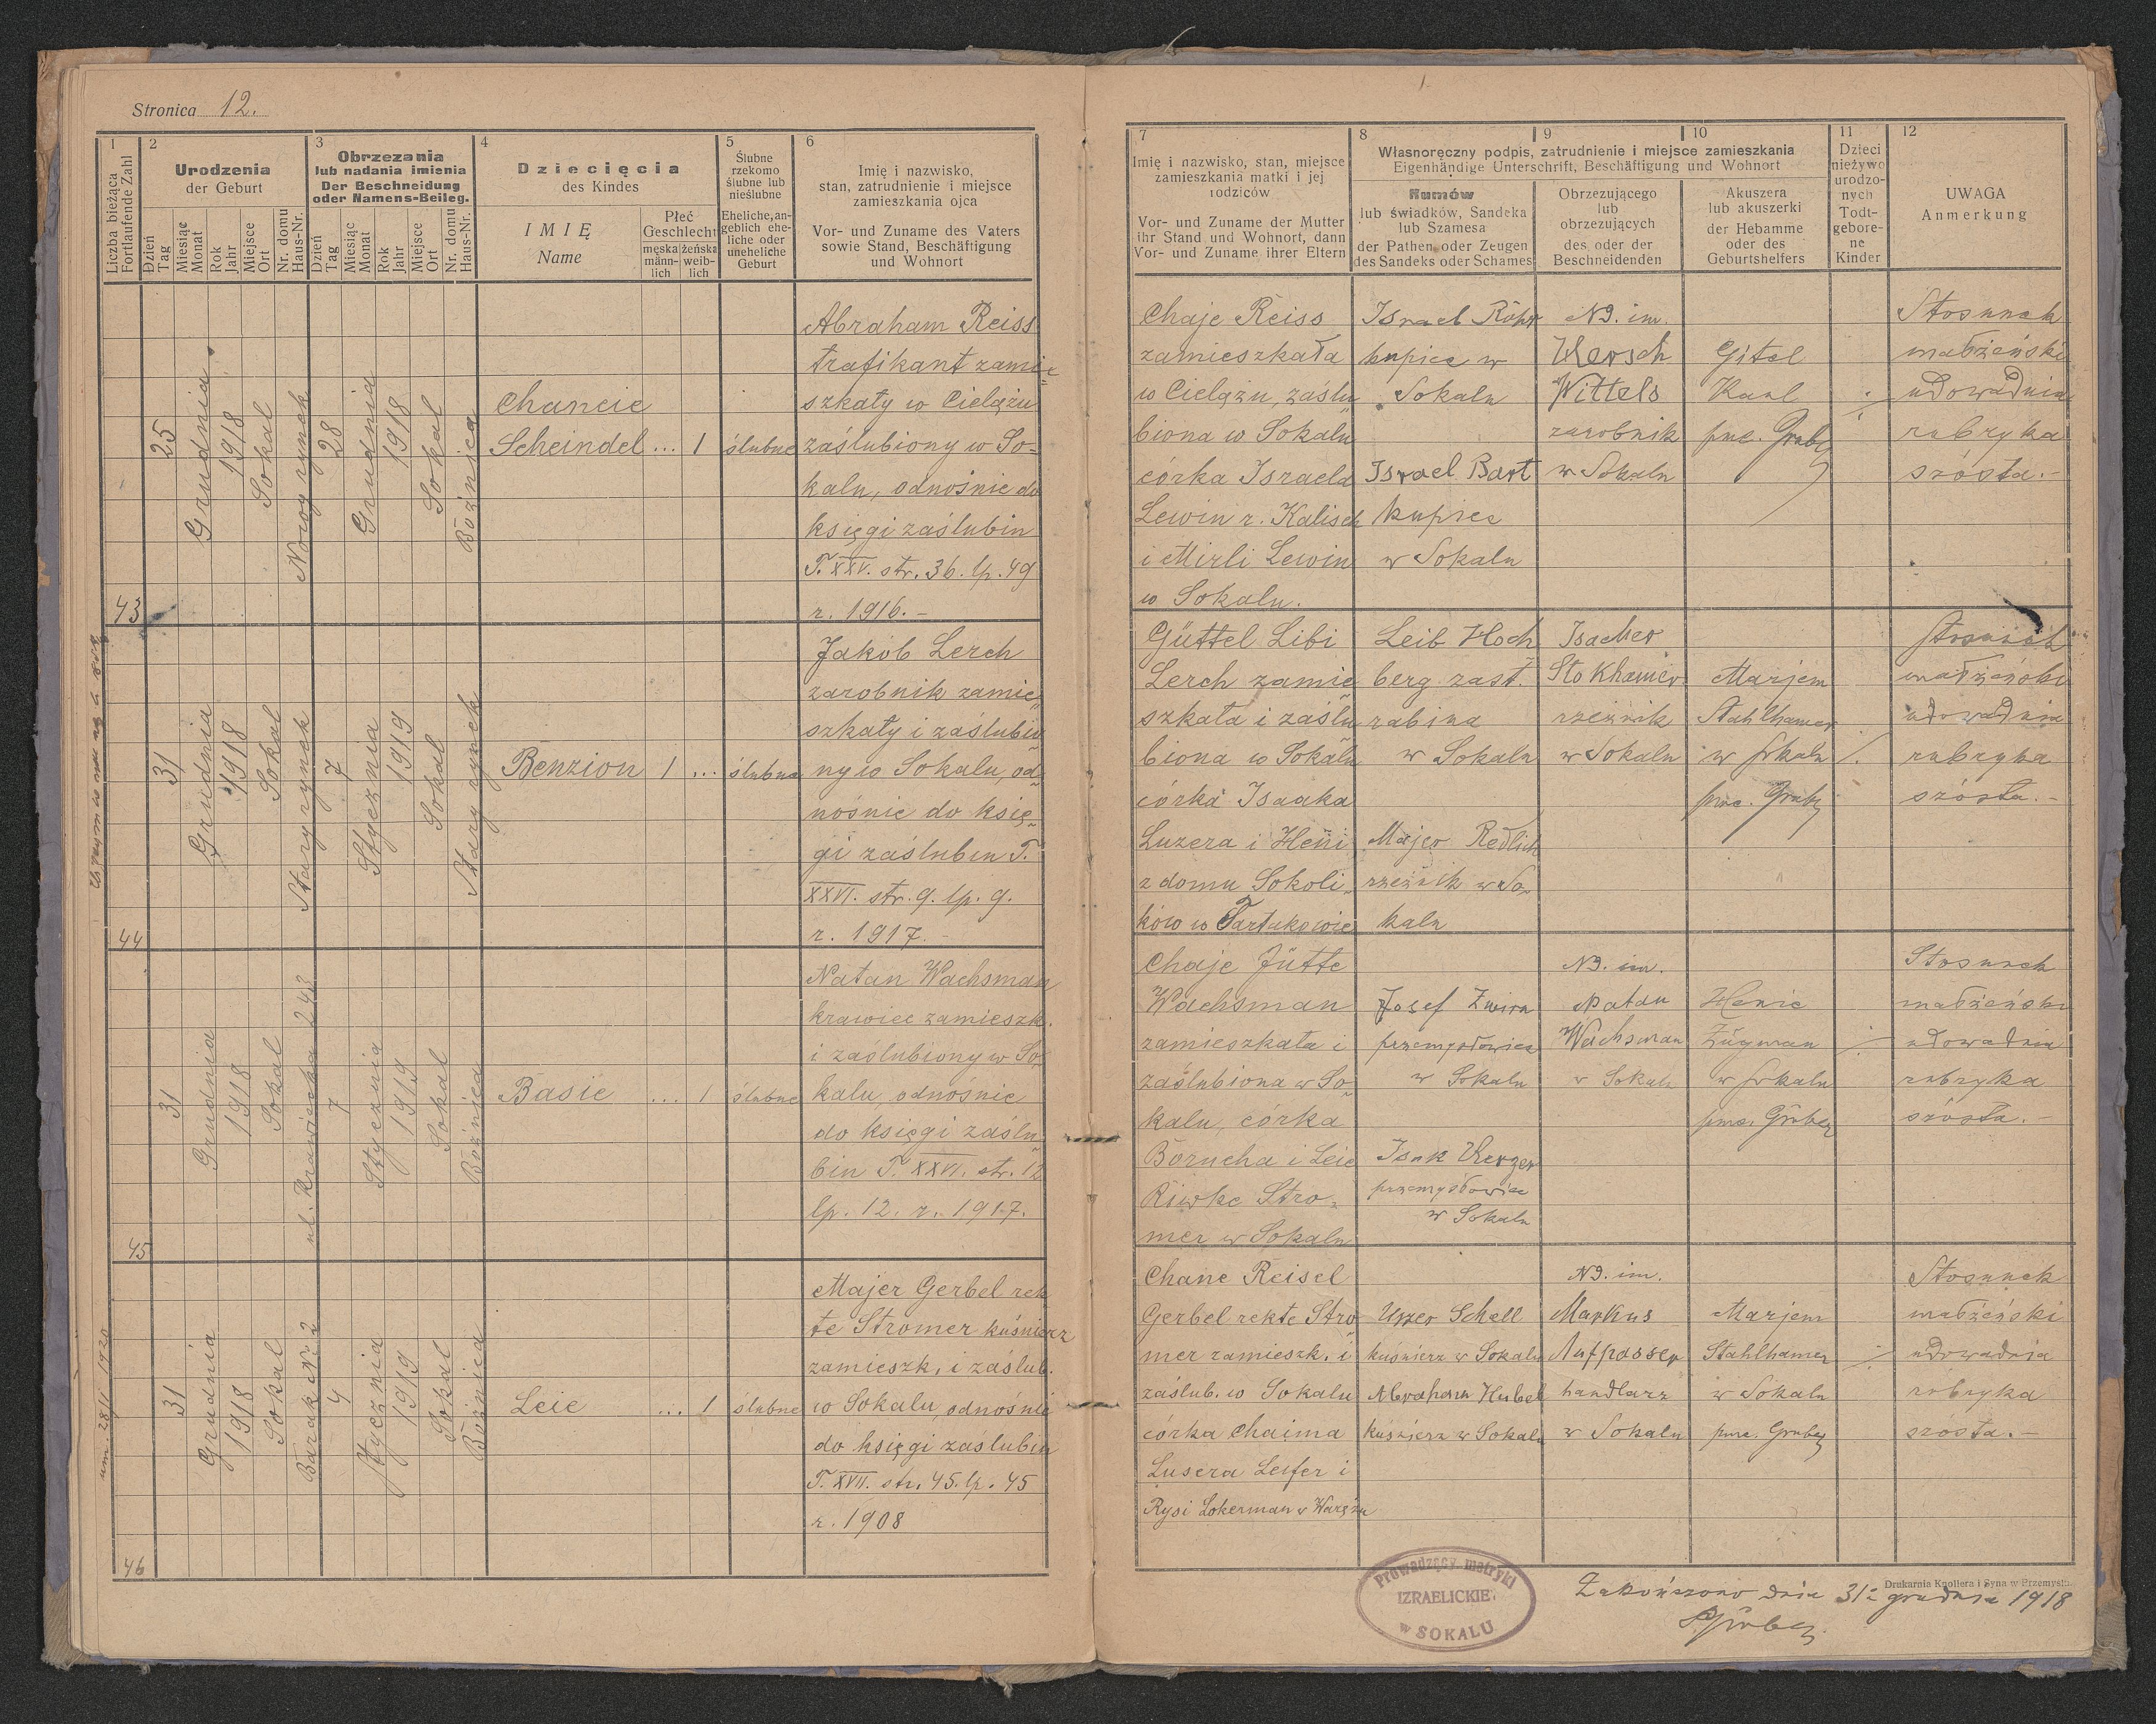 Stronica 12.
1
Liczba bieżąca
Fortlaufende Zahl
2
Urodzenia
der Geburt
Dzień
Tag
Miesiąc
Monat
Rok
Jahr
Miejsce
Ort
Nr. domu
Haus-Nr.
3
Obrzezania
lub nadania imienia
Der Beschneidung
oder Namens-Beileg.
Dzień
Tag
Miesiąc
Monat
Rok
Jahr
Miejsce
Ort
Nr. domu
Haus-Nr.
4
Dziecięcia
des Kindes
IMIĘ
Name
Płeć
Geschlecht
męska
männ-
lich
żeńska
weib-
lich
5
Ślubne
rzekomo
ślubne lub
nieślubne
Eheliche, an-
geblich ehe-
liche oder
uneheliche
Geburt
6
Imię i nazwisko,
stan, zatrudnienie i miejsce
zamieszkania ojca
Vor- und Zuname des Vaters
sowie Stand, Beschäftigung
und Wohnort
7
Imię i nazwisko, stan, miejsce
zamieszkania matki i jej
rodziców
Vor- und Zuname der Mutter
ihr Stand und Wohnort, dann
Vor- und Zuname ihrer Eltern
8
9
10
Własnoręczny podpis, zatrudnienie i miejsce zamieszkania
Eigenhändige Unterschrift, Beschäftigung und Wohnort
Kumów
lub świadków, Sandeka
lub Szamesa
der Pathen oder Zeugen
des Sandeks oder Schames
Obrzezującego
lub
obrzezujących
des oder der
Beschneidenden
Akuszera
lub akuszerki
der Hebamme
oder des
Geburtshelfers
11
Dzieci
nieżywo
urodzo-
nych
Todt-
gebore-
ne
Kinder
12
UWAGA
Anmerkung
43
25
Grudnia
1918
Sokal
Nowy rynek
28
Grudnia
1918
Sokal
Bożnica
Chancie
Scheindel ... 1
ślubne
Abraham Reiss
trafikant zamie
szkały w Cielążu
zaślubiony w So-
kalu, odnośnie do
księgi zaślubin
T. XXV. str. 36. lp. 49
r. 1916. -
Chaje Reiss
zamieszkała
w Cielążu, zaślu
biona w Sokalu
córka Israela
Lewin r. Kalisch
i Mirli Lewin
w Sokalu.
Israel Röhr
kupiec w
Sokalu
Israel Bart
kupiec
w Sokalu
Nd. im.
Hersch
Wittels
zarobnik
w Sokalu
Gitel
Kanl
pne. Gruber
Stosunek
małżeński
udowadnia
rubryka
szósta. -
44
31
Grudnia
1918
Sokal
Stary rynek
7
Stycznia
1919
Sokal
Stary rynek
Benzion 1 ...
ślubne
Jakób Lerch
zarobnik zamie
szkały i zaślubio
ny w Sokalu, od
nośnie do księ
gi zaślubin T.
XXVI. str. 9. lp. 9.
r. 1917. -
Güttel Libi
Lerch zamie
szkała i zaślu
biona w Sokalu
córka Isaaka
Luzera i Heni
z domu Sokoli
ków w Tartakowie
Leib Hoch
berg zast.
rabina
w Sokalu
Majer Redlich
rzeźnik w So
kalu
Isacher
Stokhamer
rzeźnik
w Sokalu
Marjem
Stahlhamer
w Sokalu
pne. Gruber
Stosunek
małżeński
udowadnia
rubryka
szósta. -
45
31
Grudnia
1918
Sokal
ul. Krawiecka 248
7
Stycznia
1919
Sokal
Bożnica
Basie ... 1
ślubne
Natan Wachsman
krawiec zamieszk.
i zaślubiony w So
kalu, odnośnie
do księgi zaślu
bin T. XXVI. str. 12
lp. 12. r. 1917.
Chaje Jütte
Wachsman
zamieszkała i
zaślubiona w So
kalu, córka
Borucha i Leie
Riwke Stro-
mer w Sokalu
Josef Zwirn
przemysłowiec
w Sokalu
Isak Herzer
przemysłowiec
w Sokalu
Nd. im.
Natan
Wachsman
w Sokalu
Henie
Zugman
w Sokalu
pne. Gruber
Stosunek
małżeński
udowadnia
rubryka
szósta. -
um. 28/11 1920
46
31
Grudnia
1918
Sokal
Barak Nr. 2
4
Stycznia
1919
Sokal
Bożnica
Leie ... 1
ślubne
Majer Gerbel rek
te Stromer kuśnierz
zamieszk. i zaślub.
w Sokalu, odnośnie
do księgi zaślubin
T. XVII. str. 45. lp. 45
r. 1908
Chane Reisel
Gerbel rekte Stro
mer zamieszk. i
zaślub. w Sokalu
córka Chaima
Lusera Leifer i
Rysi Lokerman w Warężu
Uszer Schell
kuśnierz w Sokalu
Abraham Hubel
kuśnierz w Sokalu
Nd. im.
Markus
Aufpasser
handlarz
w Sokalu
Marjem
Stahlhamer
w Sokalu
pne. Gruber
Stosunek
małżeński
udowadnia
rubryka
szósta. -
Prowadzący matryki
IZRAELICKIE
w SOKALU
Drukarnia Knollera i Syna w Przemyślu.
Zakończono dnia 31 grudnia 1918
Gruber